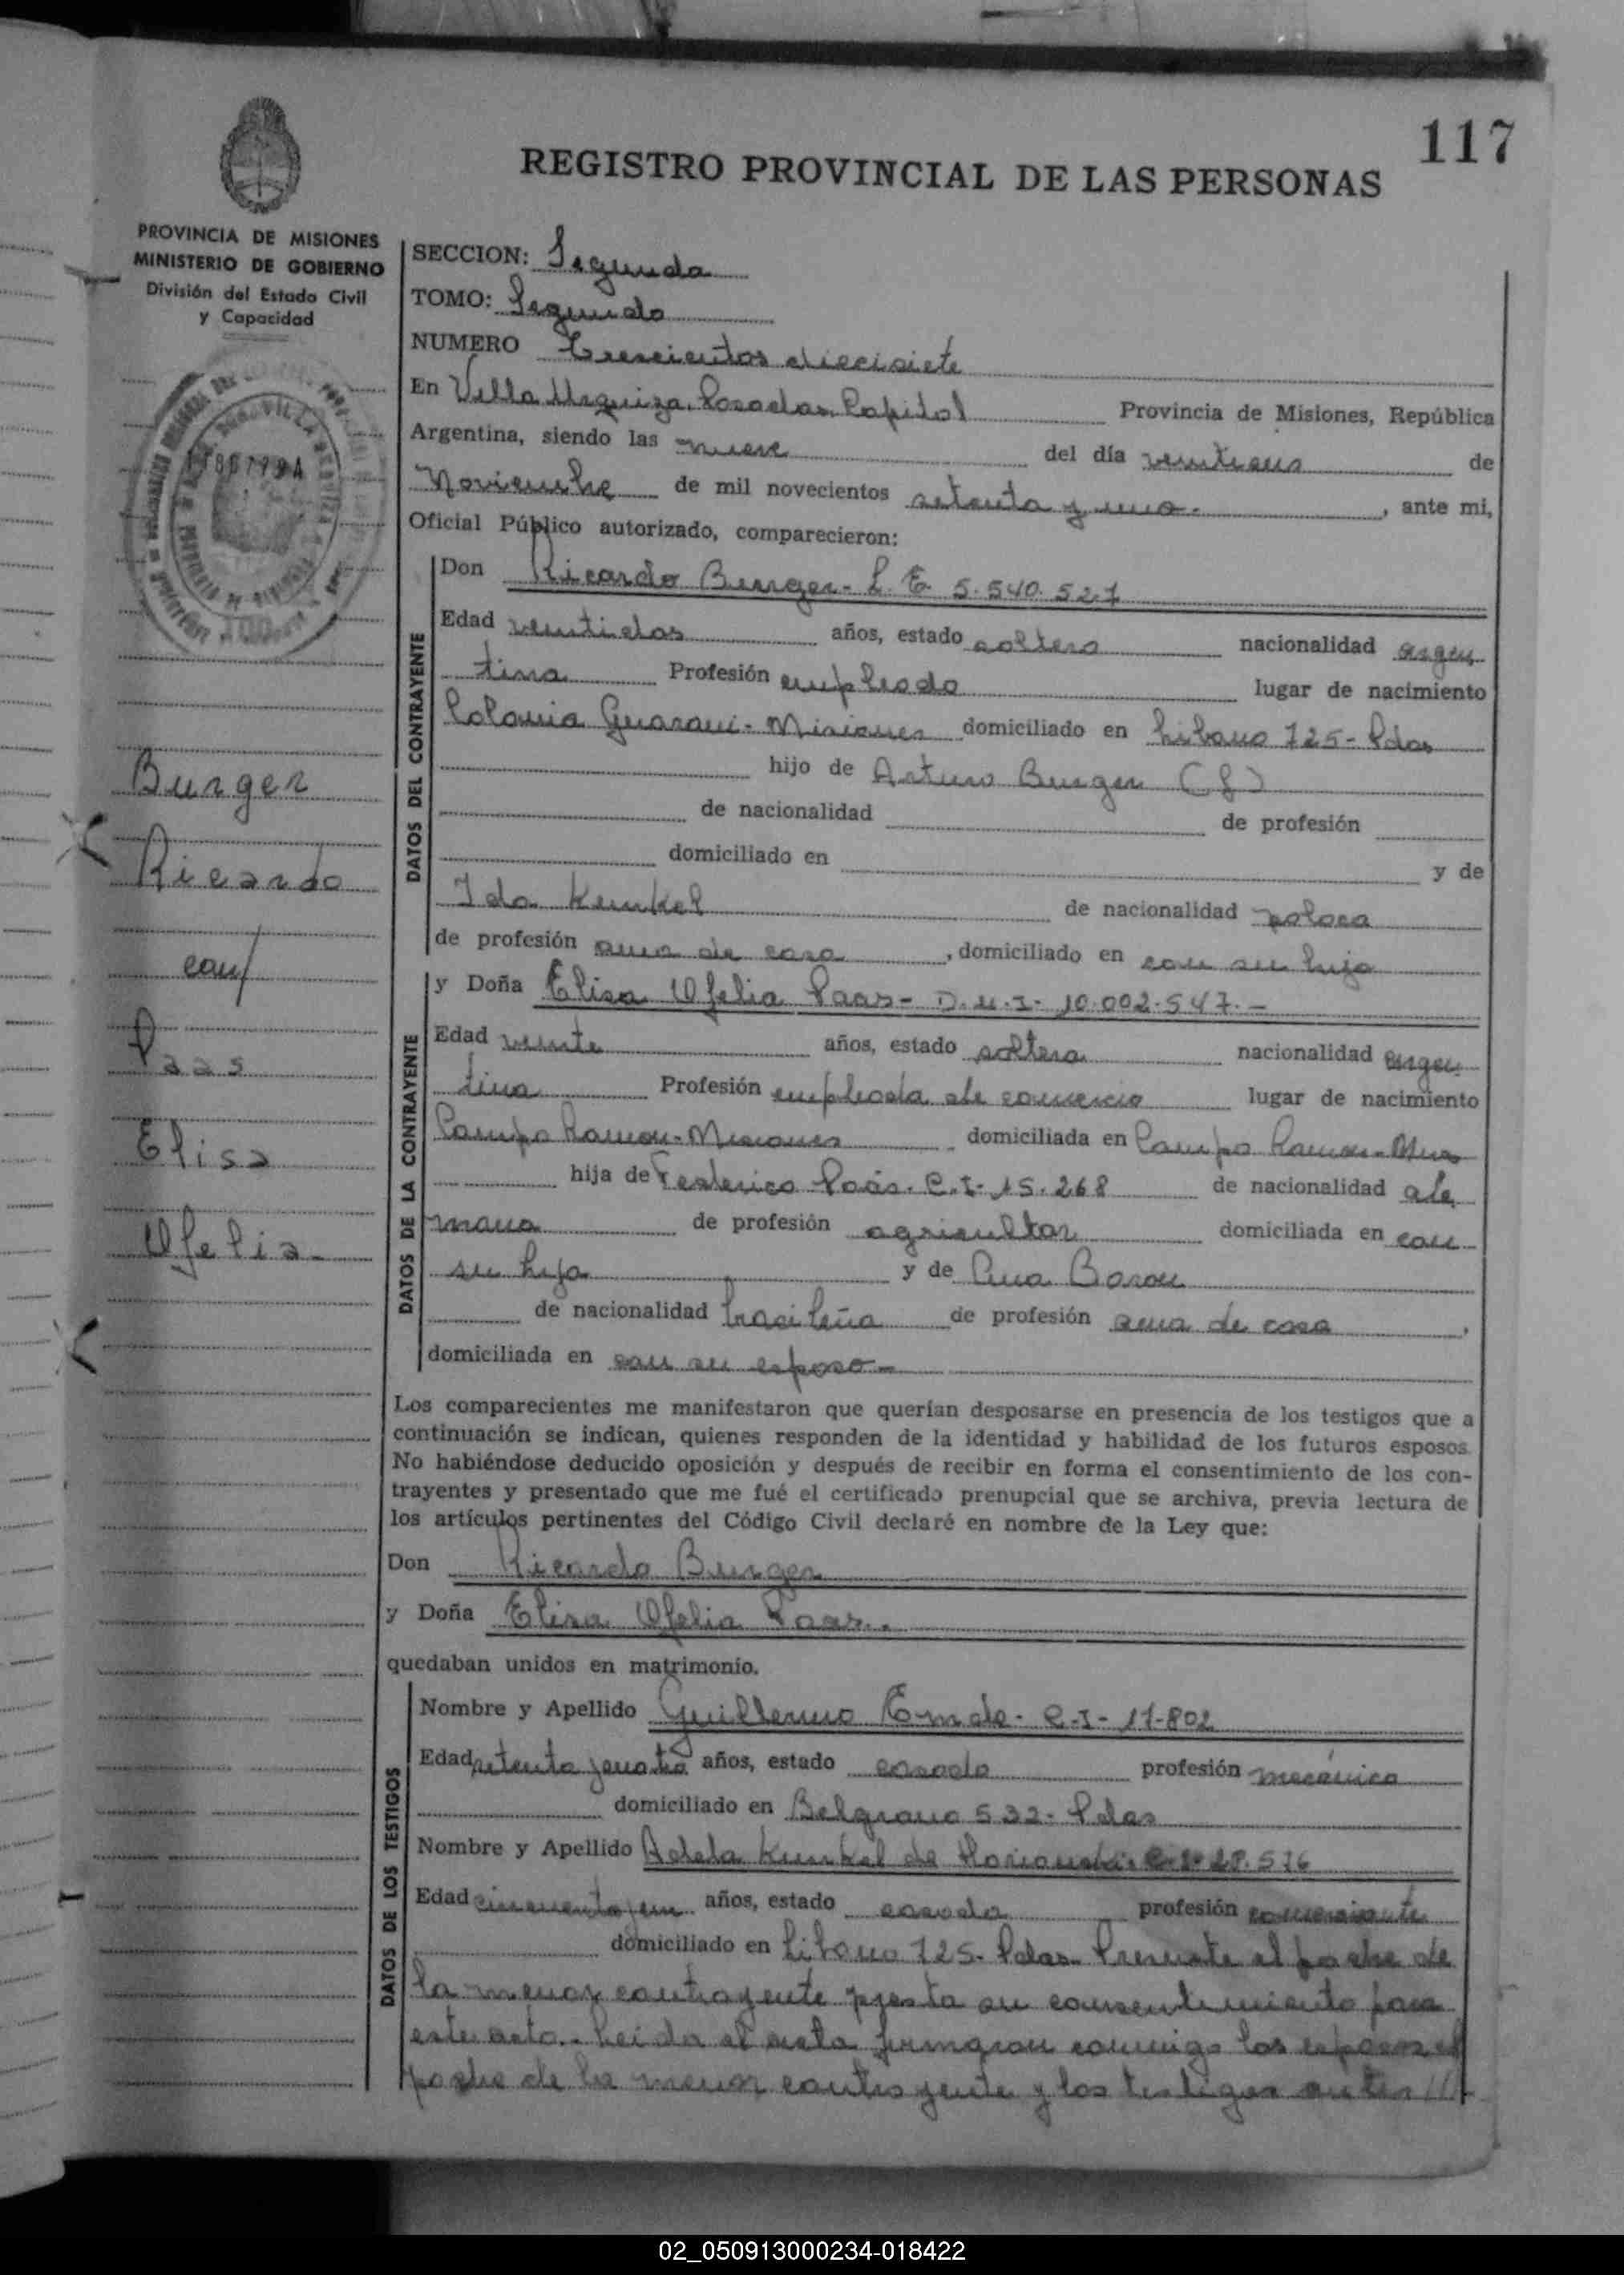 117
REGISTRO PROVINCIAL DE LAS PERSONAS
PROVINCIA DE MISIONES
MINISTERIO DE GOBIERNO
División del Estado Civil
y Capacidad
Burger
Ricardo
con/
Paas
Elisa
Ofelia
SECCION: Segunda
TOMO: Segundo
NUMERO Trescientos diecisiete
En Villa Urquiza, Posadas, Capital Provincia de Misiones, República
Argentina, siendo las nueve del día veintseis de
Noviembre de mil novecientos setenta y uno. , ante mi,
Oficial Público autorizado, comparecieron:
DATOS DEL CONTRAYENTE
Don Ricardo Burger- L. E. 5.540.527
Edad veintidos años, estado soltero nacionalidad argen
tina Profesión empleado lugar de nacimiento
Colonia Guarani- Misiones domiciliado en Libano 725- Pdas
hijo de Arturo Burger (f)
de nacionalidad de profesión
domiciliado en y de
Ida Kunkel de nacionalidad polaca
de profesión ama de casa , domiciliado en con su hijo
DATOS DE LA CONTRAYENTE
y Doña Elisa Ofelia Paas- D.N.I- 10.002.547.-
Edad veinte años, estado soltera nacionalidad argen
tina Profesión empleada de comercio lugar de nacimiento
Campo Ramon-Misiones domiciliada en Campo Ramon-Mnes
hija de Federico Paas. C.I- 15.268 de nacionalidad ale
mana de profesión agricultor domiciliada en con
su hija y de Ana Boron
de nacionalidad brasileña de profesión ama de casa ,
domiciliada en con su esposo-
Los comparecientes me manifestaron que querían desposarse en presencia de los testigos que a
continuación se indican, quienes responden de la identidad y habilidad de los futuros esposos.
No habiéndose deducido oposición y después de recibir en forma el consentimiento de los con-
trayentes y presentado que me fué el certificado prenupcial que se archiva, previa lectura de
los artículos pertinentes del Código Civil declaré en nombre de la Ley que:
Don Ricardo Burger
y Doña Elisa Ofelia Paas.
quedaban unidos en matrimonio.
DATOS DE LOS TESTIGOS
Nombre y Apellido Guillermo Emde- C-I- 17-802
Edad setenta y cuatro años, estado casado profesión mecánico
domiciliado en Belgrano 532- Pdas
Nombre y Apellido Adela Kunkel de
Edad cincuenta y un años, estado casada profesión comerciante
domiciliado en Libano 725- Pdas- Presente el padre de
la menor contrayente presta su consentimiento para
este acto.- Leida el acta firmaron conmigo los esposos el
padre de la menor contrayente y los testigos antes ///-
02_050913000234-018422